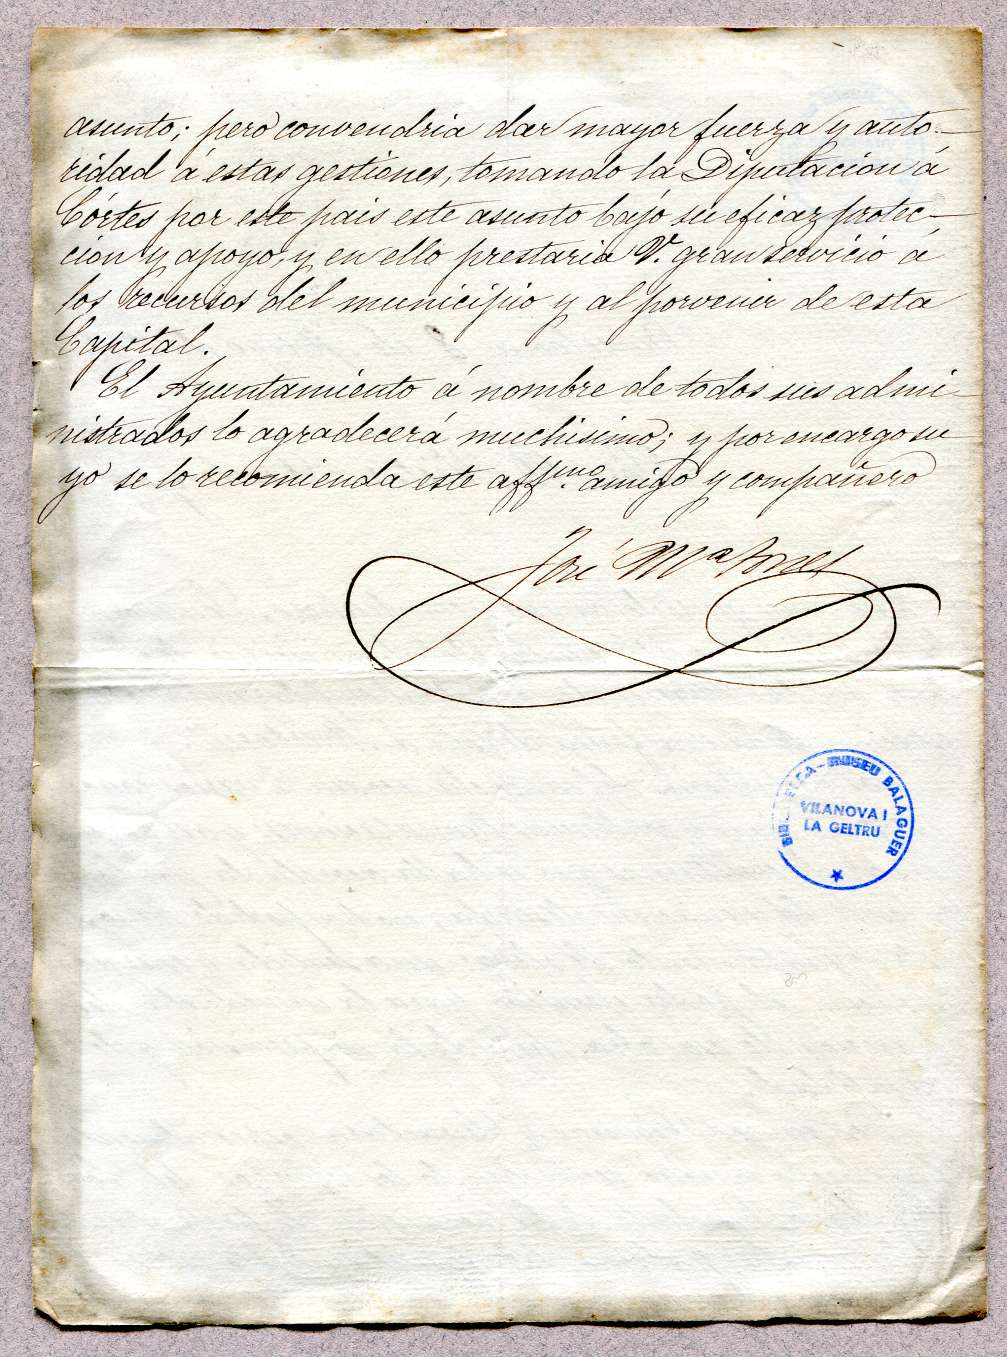 asunto; pero convendria dar mayor fuerza y auto-
ridad á estas gestiones, tomando la Diputacion á
Córtes por este pais este asunto bajo su eficaz protec-
cion y apoyo, y en ello prestaria V. gran servicio á
los recursos del municipio y al porvenir de esta
Capital.
El Ayuntamiento á nombre de todos sus admi-
nistrados lo agradecerá muchisimo; y por encargo su
yo se lo recomienda este affmo. amigo y compañero
José Mª
MUSEU BALAGUER
VILANOVA I
LA GELTRU